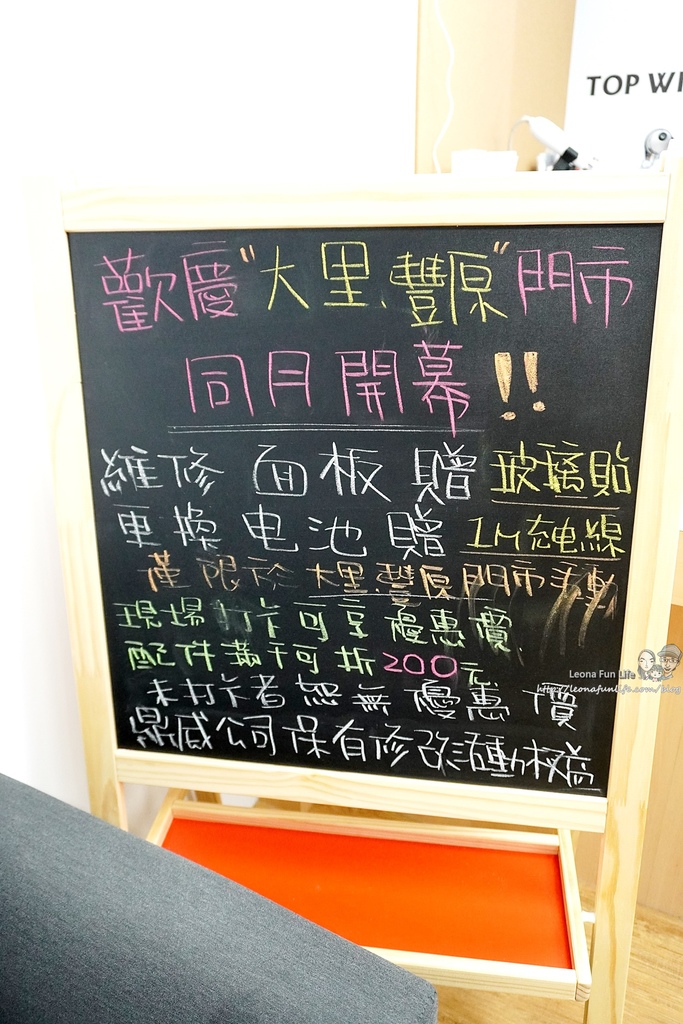 TOP WI
歡慶"大里、豐原"門市
同月開幕!!
維修 面板 贈 玻璃貼
更換 电池 贈 1M充電線
僅限於 大里.豐原門市活動
現場打卡可享優惠價
配件滿千可折200元
未打卡者恕無優惠價
鼎威公司保有修改活動權益
Leona Fun Life
http://leonafunlife.com/blog